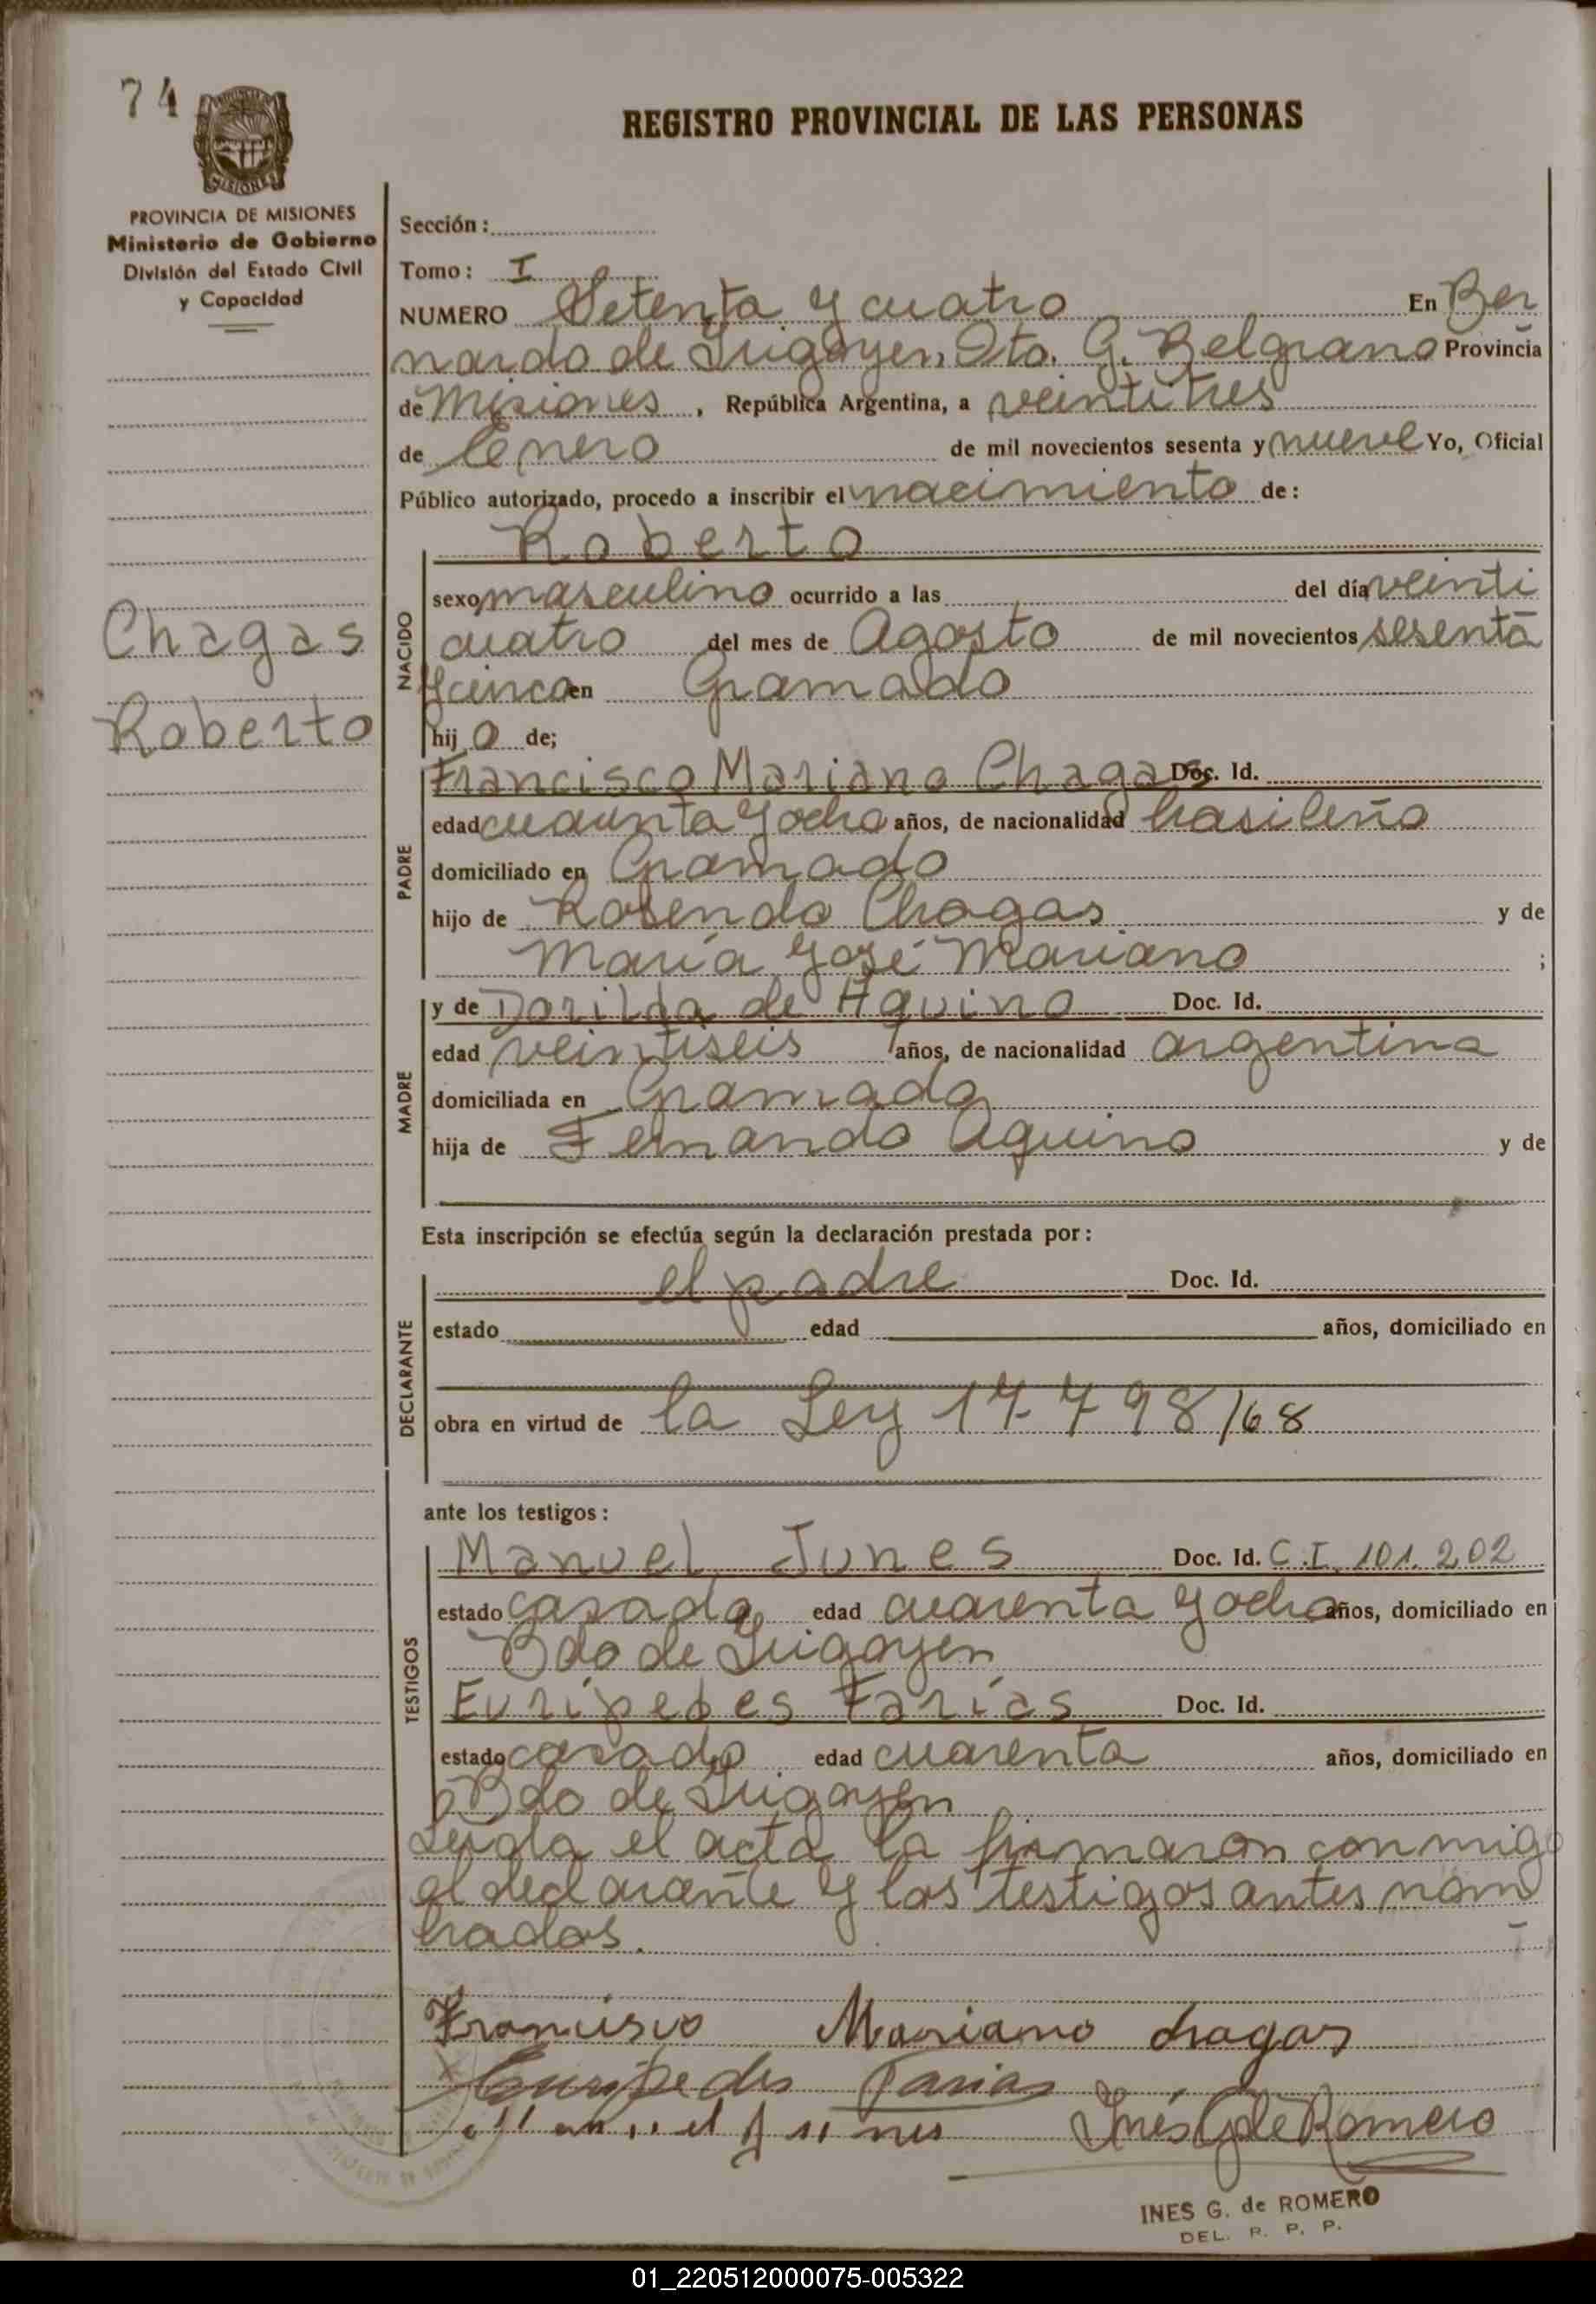 74
REGISTRO PROVINCIAL DE LAS PERSONAS
MISIONES
PROVINCIA DE MISIONES
Ministerio de Gobierno
División del Estado Civil
y Capacidad
Chagas
Roberto
Sección:
Tomo: I
NUMERO Setenta y cuatro En Ber
nardo de Irigoyen, Dto. G. Belgrano Provincia
de Misiones, República Argentina, a veintitres
de Enero de mil novecientos sesenta y nueve Yo, Oficial
Público autorizado, procedo a inscribir el nacimiento de:
NACIDO
Roberto
sexo masculino ocurrido a las del día veinti
cuatro del mes de Agosto de mil novecientos sesenta
y cinco en Gramado
hij o de;
PADRE
Francisco Mariano Chagas Doc. Id.
edad cuarenta y ocho años, de nacionalidad brasileño
domiciliado en Gramado
hijo de Rosendo Chagas y de
María José Mariano ;
MADRE
y de Dorilda de Aquino Doc. Id.
edad veintiseis años, de nacionalidad argentina
domiciliada en Gramado
hija de Fernando Aquino y de
Esta inscripción se efectúa según la declaración prestada por:
DECLARANTE
el padre Doc. Id.
estado edad años, domiciliado en
obra en virtud de la Ley 17798/68
ante los testigos:
TESTIGOS
Manuel Junes Doc. Id. C.I. 101.202
estado casado edad cuarenta y ocho años, domiciliado en
Bdo de Irigoyen
Eurípedes Farías Doc. Id.
estado casado edad cuarenta años, domiciliado en
Bdo de Irigoyen
Leida el acta la firmaron conmigo
el declarante y los testigos antes nom
brados.
Francisco Mariano chagas
Euripedes Farias
Manuel Junes Inés G de Romero
INES G. de ROMERO
DEL. R. P. P.
01_220512000075-005322